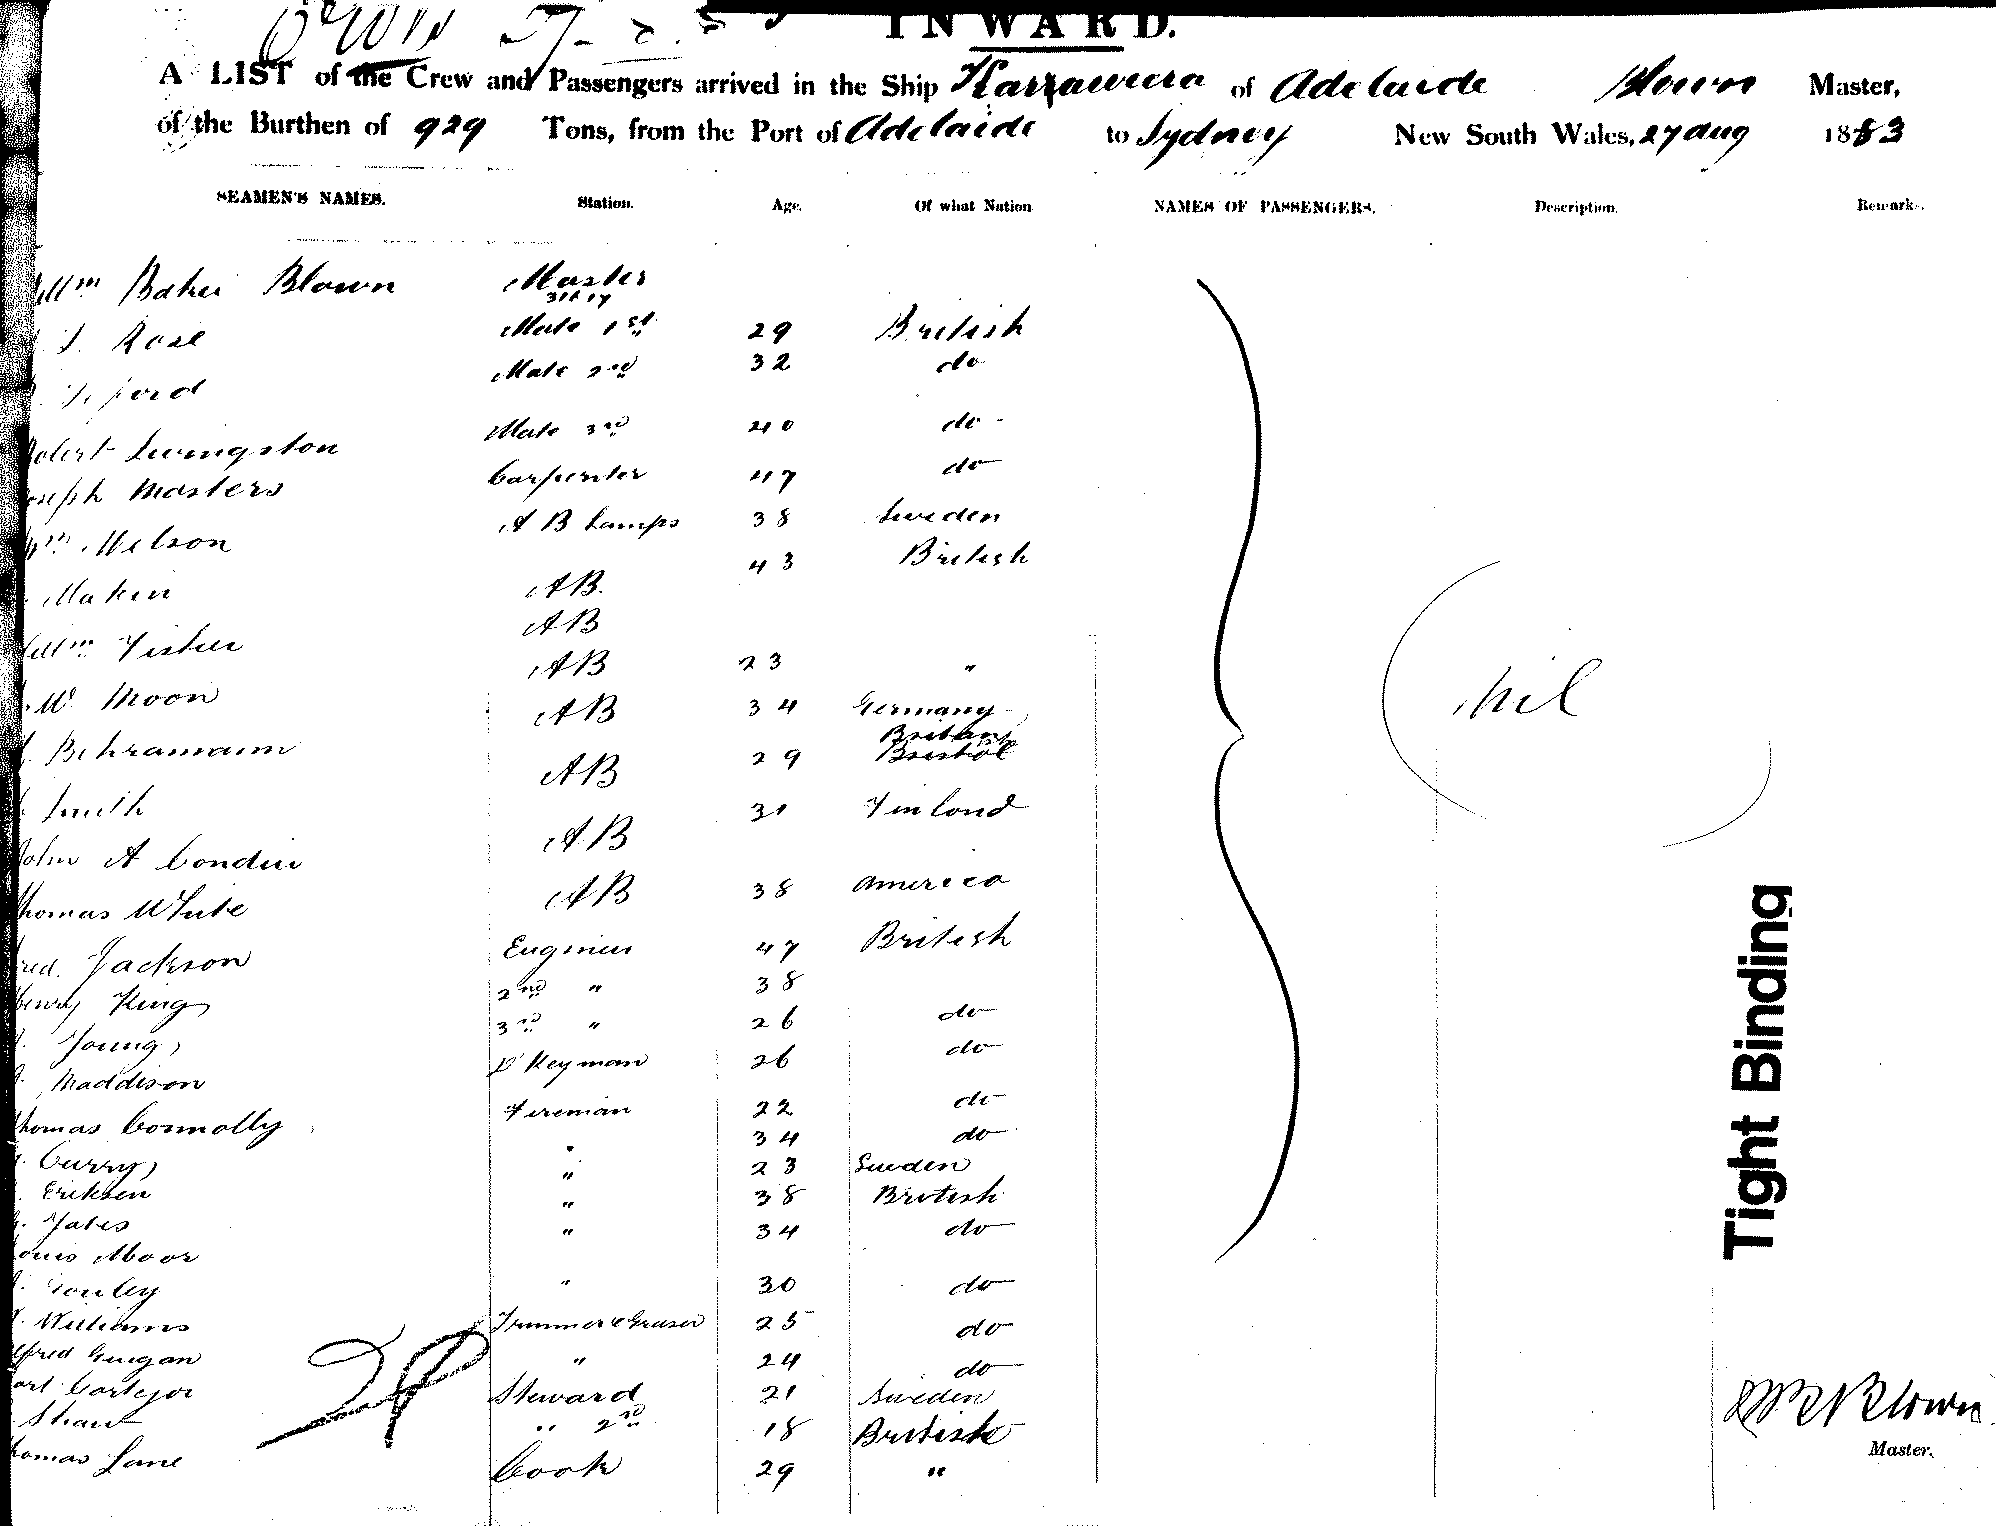 Crew
INWARD.
A LIST of the Crew and Passengers arrived in the Ship Karraweera of Adelaide Blown Master,
of the Burthen of 929 Tons, from the Port of Adelaide to Sydney New South Wales, 27 Aug 1883
SEAMEN'S NAMES. Station. Age. Of what Nation NAMES OF PASSENGERS. Description. Remarks.
Willm Baker Blown Master
T. Rose Mate 1st 29 British
ford Mate 2nd 32 do
Robert Livingston Mate 3rd 40 do
Joseph Masters Carpenter 47 do
Wm Nelson A B Lamps 38 Sweden
Makin AB. 43 British
Willm Fisher AB
W Moon AB 23 "
Behramann AB 34 Germany
Smith AB 29 Britain Bristol
John A Condin AB 31 Finland
Thomas White AB 38 America
Fred. Jackson Engineer 47 British
Henry King 2nd " 38
Young 3rd " 26 do
Maddison D'Keyman 26 do
Thomas Connolly Fireman 22 do
Curry " 34 do
Eriksen " 23 Sweden
Yates " 38 British
Louis Moor " 34 do
" 30 do
Williams Trimmer & Greaser 25 do
Alfred " 24 do
Steward 21 Sweden
Shaw " 2nd 18 British
Thomas Lane Cook 29 "
nil
Tight Binding
29
W B Blown
Master.